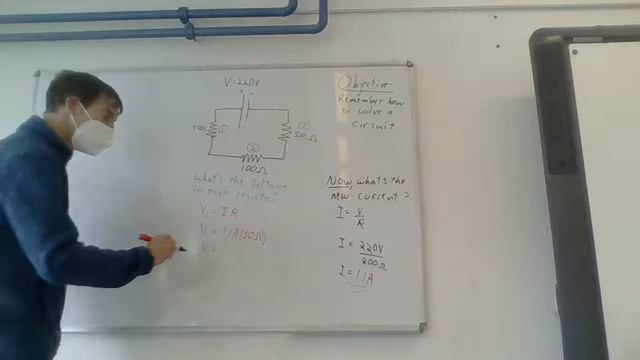 V = 220V
+ -
50Ω ①
③ 50Ω
②
100Ω
Objective:
Remember how
to solve a
circuit
What's the Voltage
in each resistor
V₁ = I R
V₁ = 1.1A(50Ω)
V₁ =
Now, what's the
new current?
I = V
R
I = 220V
200Ω
I = 1.1A